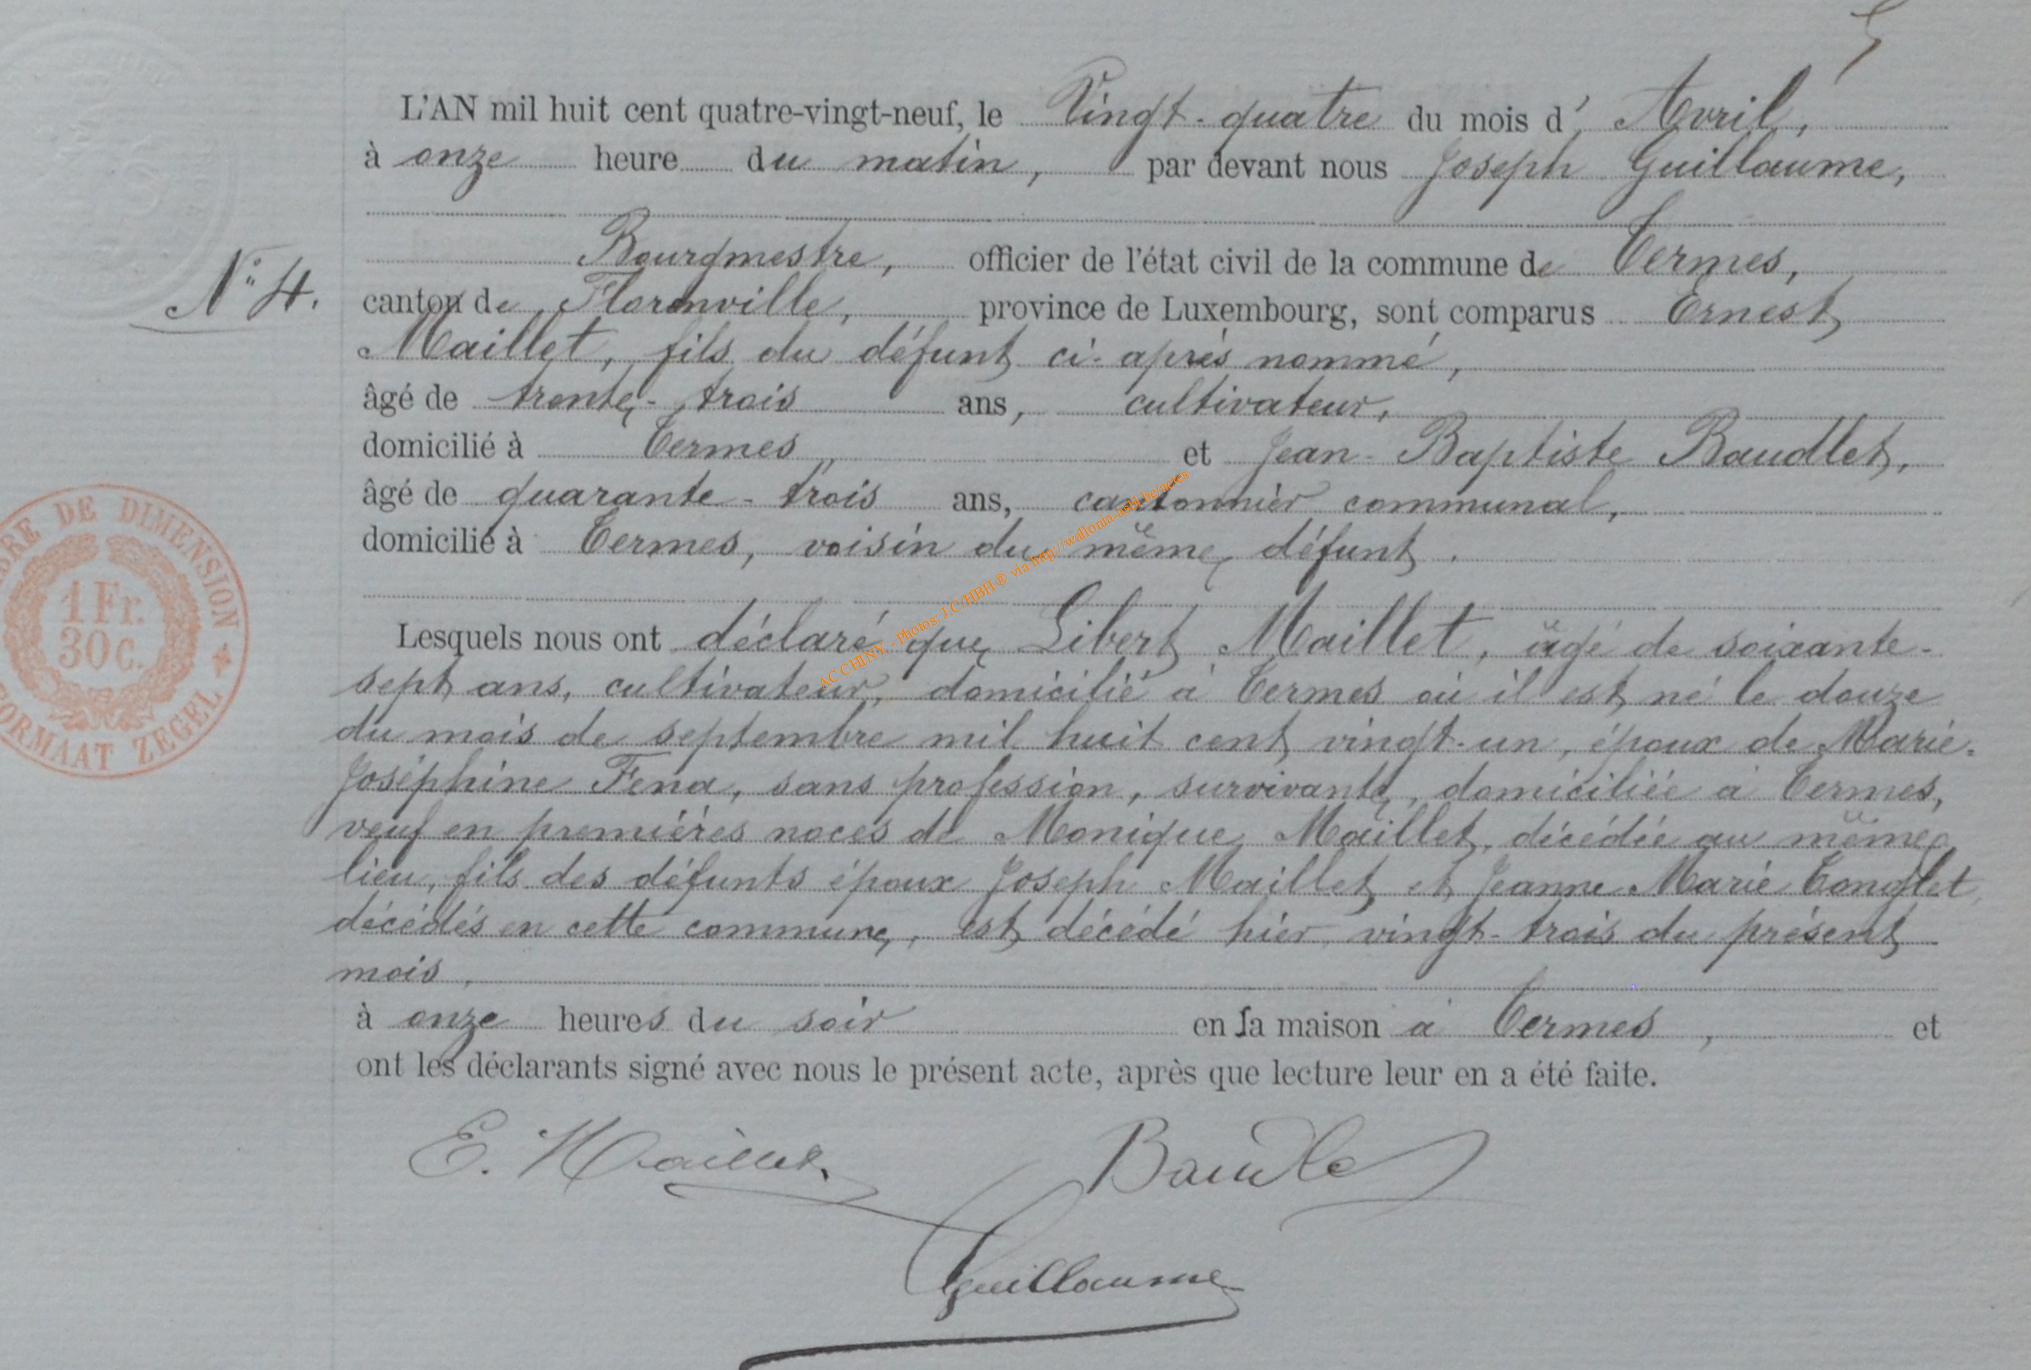 5
L'AN mil huit cent quatre-vingt-neuf, le Vingt-quatre du mois d' Avril,
à onze heure du matin, par devant nous Joseph Guillaume,
Bourgmestre, officier de l'état civil de la commune de Termes,
N° 4. canton de Florenville, province de Luxembourg, sont comparus Ernest
Maillet, fils du défunt ci-après nommé,
âgé de trente-trois ans, cultivateur,
domicilié à Termes, et Jean-Baptiste Baudlet,
âgé de quarante-trois ans, cantonnier communal,
domicilié à Termes, voisin du même défunt.
Lesquels nous ont déclaré que Libert Maillet, âgé de soixante-
sept ans, cultivateur, domicilié à Termes où il est né le douze
du mois de septembre mil huit cent vingt-un, époux de Marie-
Joséphine Fena, sans profession, survivante, domiciliée à Termes,
veuf en premières noces de Monique Maillet, décédée au même
lieu, fils des défunts époux Joseph Maillet et Jeanne Marie Tonglet,
décédés en cette commune, est décédé hier vingt-trois du présent
mois,
à onze heures du soir en sa maison à Termes, et
ont les déclarants signé avec nous le présent acte, après que lecture leur en a été faite.
E. Maillet Baudlet
Guillaume
TIMBRE DE DIMENSION
1 Fr.
30 C.
FORMAAT ZEGEL
AC CHINY - Photos: J.C/HBH® via http://wallonia-asbl.be/actes